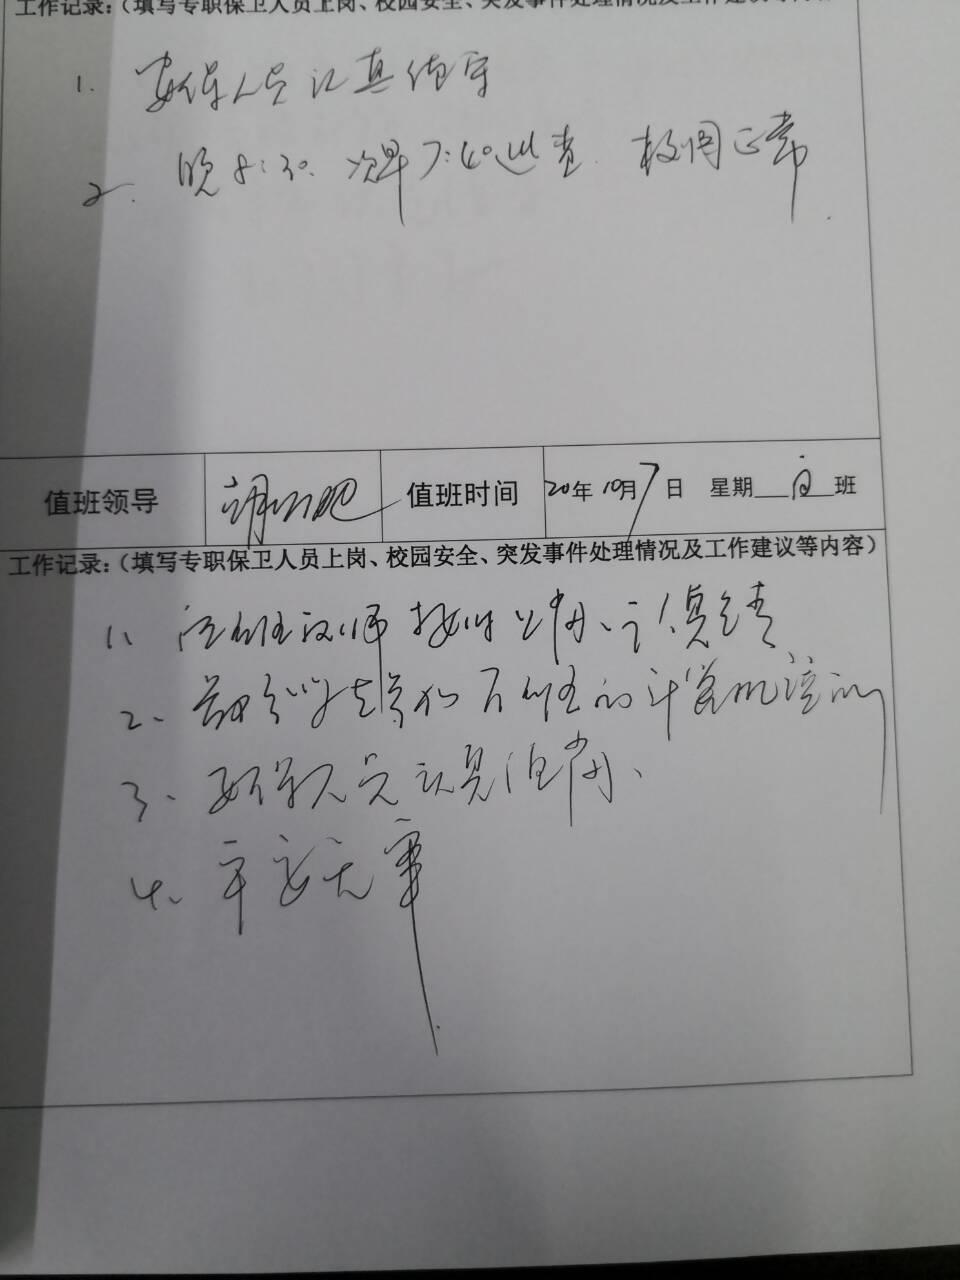 工作记录：（填写专职保卫人员上岗、校园安全、突发事件处理情况及工作建议等内容
1. 安保人员认真值守
2. 晚8:30. 次早7:40巡查. 校园正常.
值班领导 值班时间 20年10月7日 星期 白 班
工作记录：（填写专职保卫人员上岗、校园安全、突发事件处理情况及工作建议等内容）
1、 教师按时上
2、 的计算机培训
3、安保人员认真值
4、平安无事